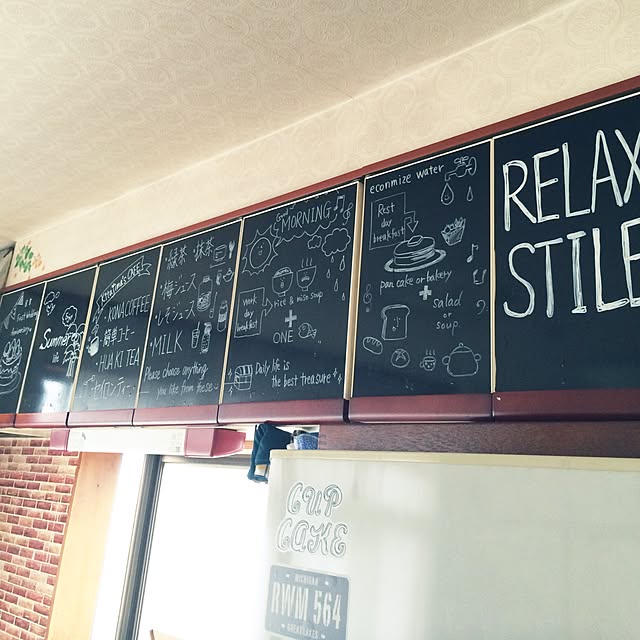 Summer
KONA COFFEE
簡単コーヒー
HUA KI TEA
セイロンティー
緑茶・抹茶
梅ジュース
レモンジュース
MILK
Please choose anything
you like from these
Good
MORNING
Work
day
breakfast
rice & miso soup
+
ONE
Daily life is
the best treasure
econmize water
Rest
day
breakfast
pan cake or bakery
+
salad
or
soup
RELAX
STILE
CUP
CAKE
MICHIGAN
RWM 564
GREAT LAKES